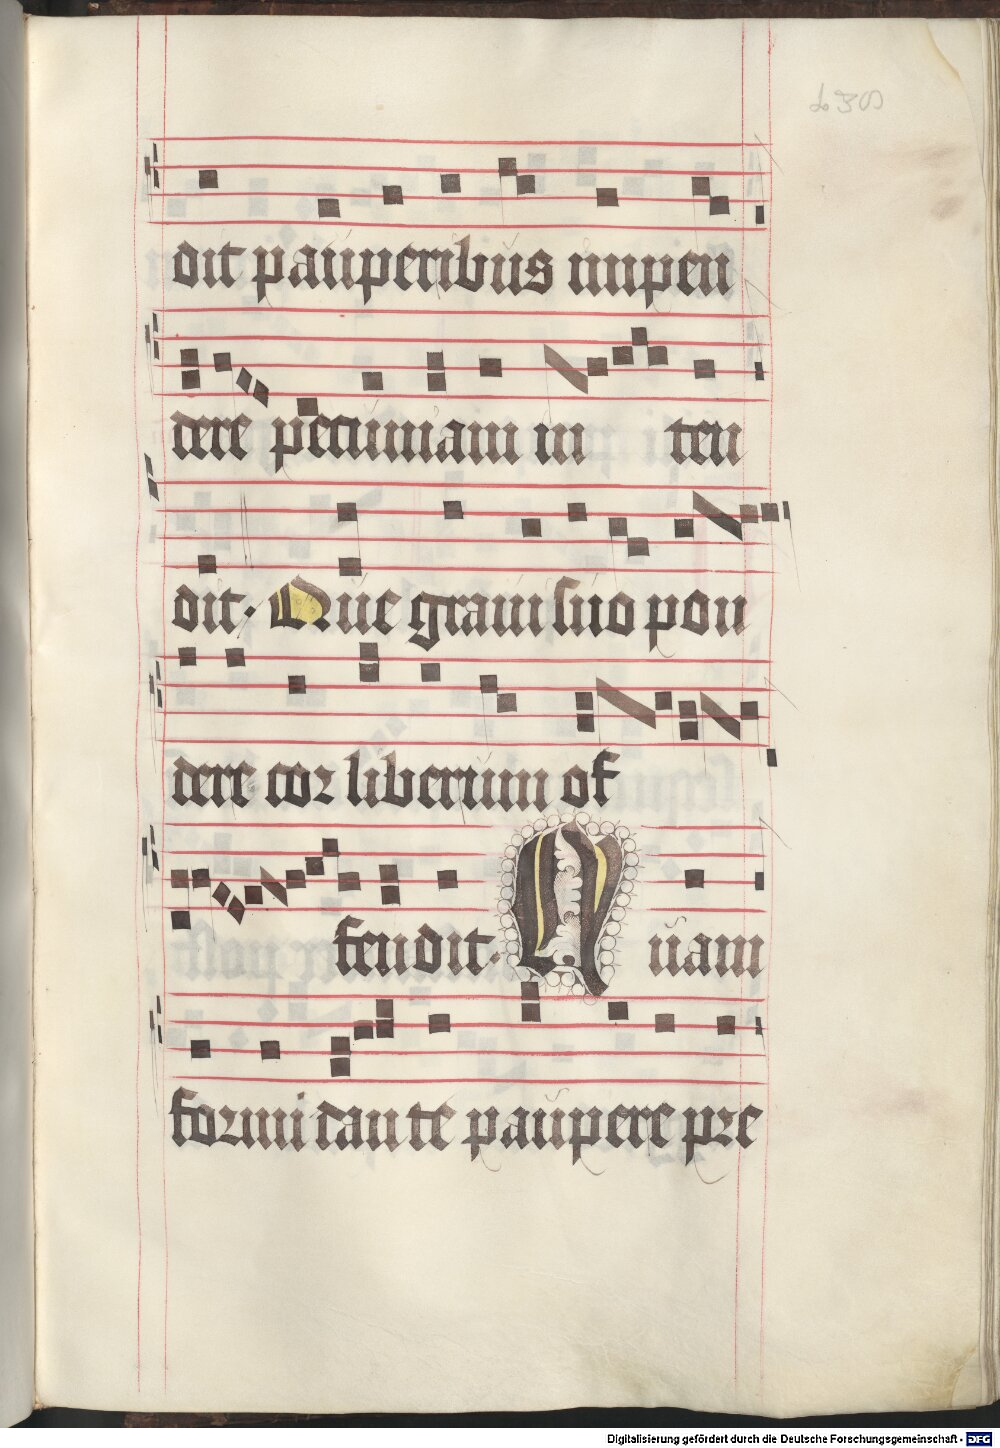 dit pauperibus impen
dere pecuniam in ten
dit. Que graui suo pon
dere cor liberum of
fendit. Quam
formidante paupere pre
Digitalisierung gefördert durch die Deutsche Forschungsgemeinschaft - DFG